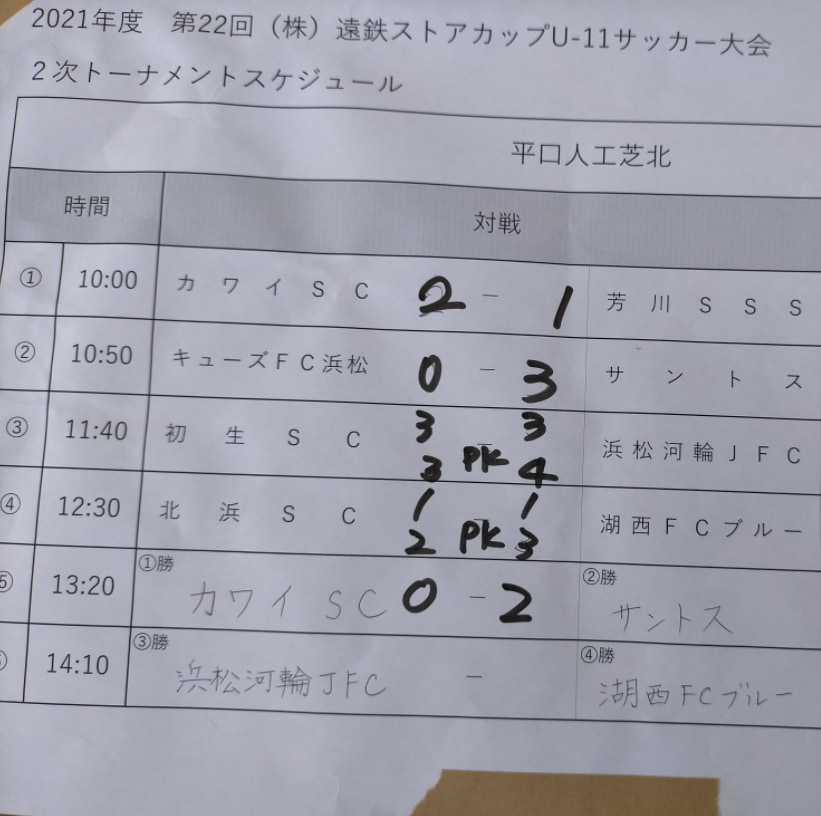 2021年度 第22回（株）遠鉄ストアカップU-11サッカー大会
2次トーナメントスケジュール
平口人工芝北
時間 対戦
① 10:00 カワイSC 2 - 1 芳川SSS
② 10:50 キューズFC浜松 0 - 3 サントス
③ 11:40 初生SC 3 - 3 浜松河輪JFC
3 PK 4
④ 12:30 北浜SC 1 - 1 湖西FCブルー
2 PK 3
⑤ 13:20 ①勝 カワイSC 0 - 2 ②勝 サントス
14:10 ③勝 浜松河輪JFC - ④勝 湖西FCブルー